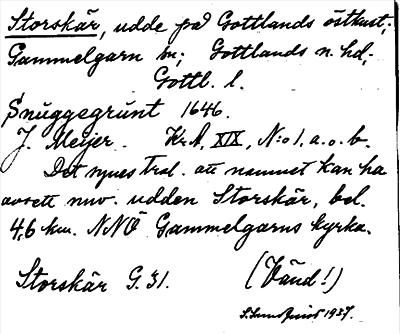 Storskär, udde på Gottlands östkust;
Gammelgarn sn; Gottlands n. hd;
Gottl. l.
Snuggegrunt 1646.
J. Meijer. Kr.A, XIX, N:o 1, a. o. b.
Det synes trol. att namnet kan ha
avsett nuv. udden Storskär, bel.
4,6 km. NNÖ Gammelgarns kyrka.
Storskär G. 31.
(Vänd!)
S. Sundquist 1937.